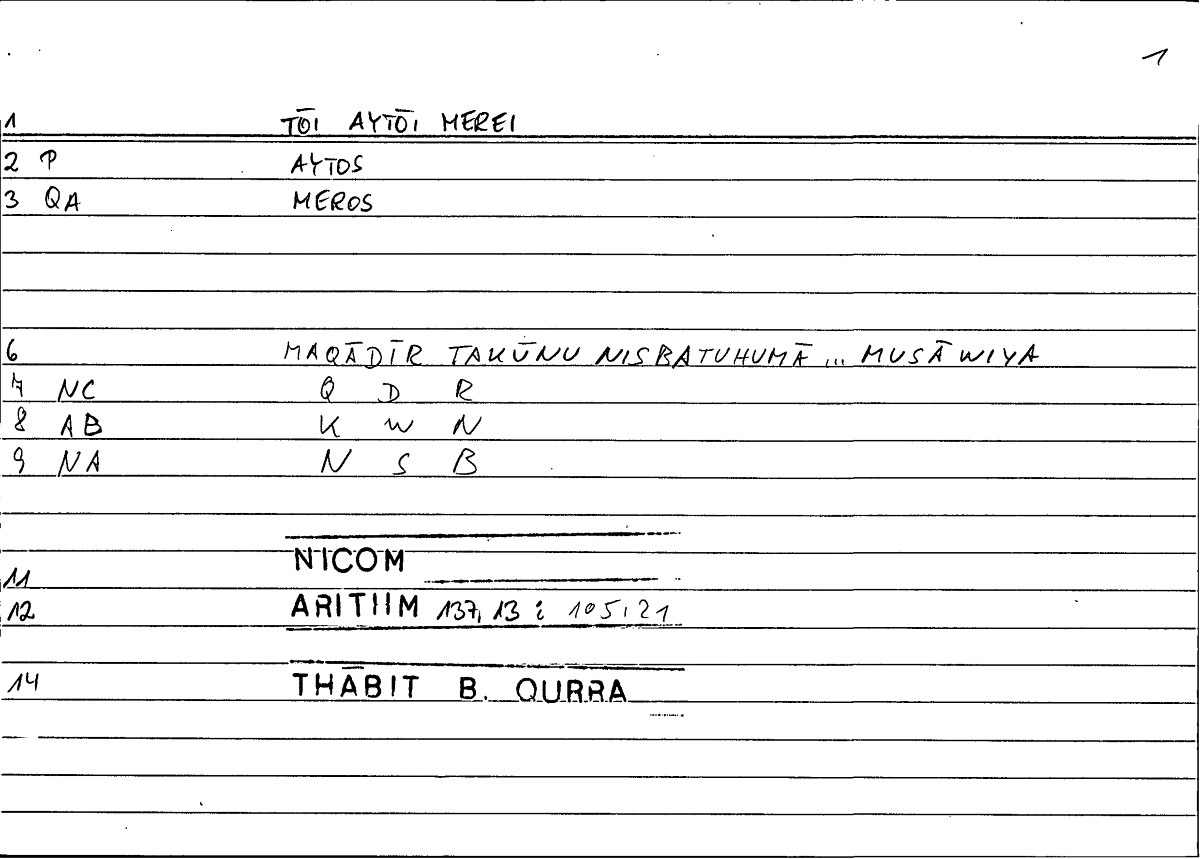 1
1 TŌI AYTŌI MEREI
2 P AYTOS
3 QA MEROS
6 MAQĀDĪR TAKŪNU NISBATUHUMĀ ... MUSĀWIYA
7 NC Q D R
8 AB K W N
9 NA N S B
11 NICOM
12 ARITIIM 137,13 ; 105,21
14 THĀBIT B. QURRA